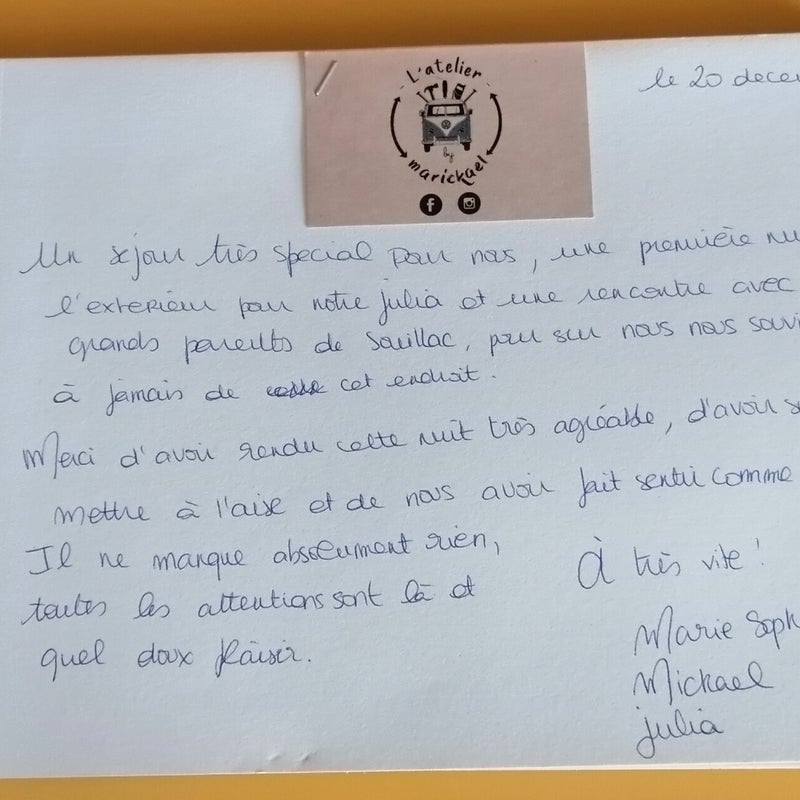 L'atelier
by
marickael
le 20 decem
Un séjour très special pour nos, une première nu
l'exterieur pour notre julia et une rencontre avec
grands parents de Souillac, pour sur nous nous souvi
à jamais de cet endroit.
Merci d'avoir rendu cette nuit très agréable, d'avoir s
mettre à l'aise et de nous avoir fait sentir comme
Il ne manque absolument rien,
toutes les attentions sont là et
quel doux plaisir.
À très vite !
Marie Soph
Mickael
julia